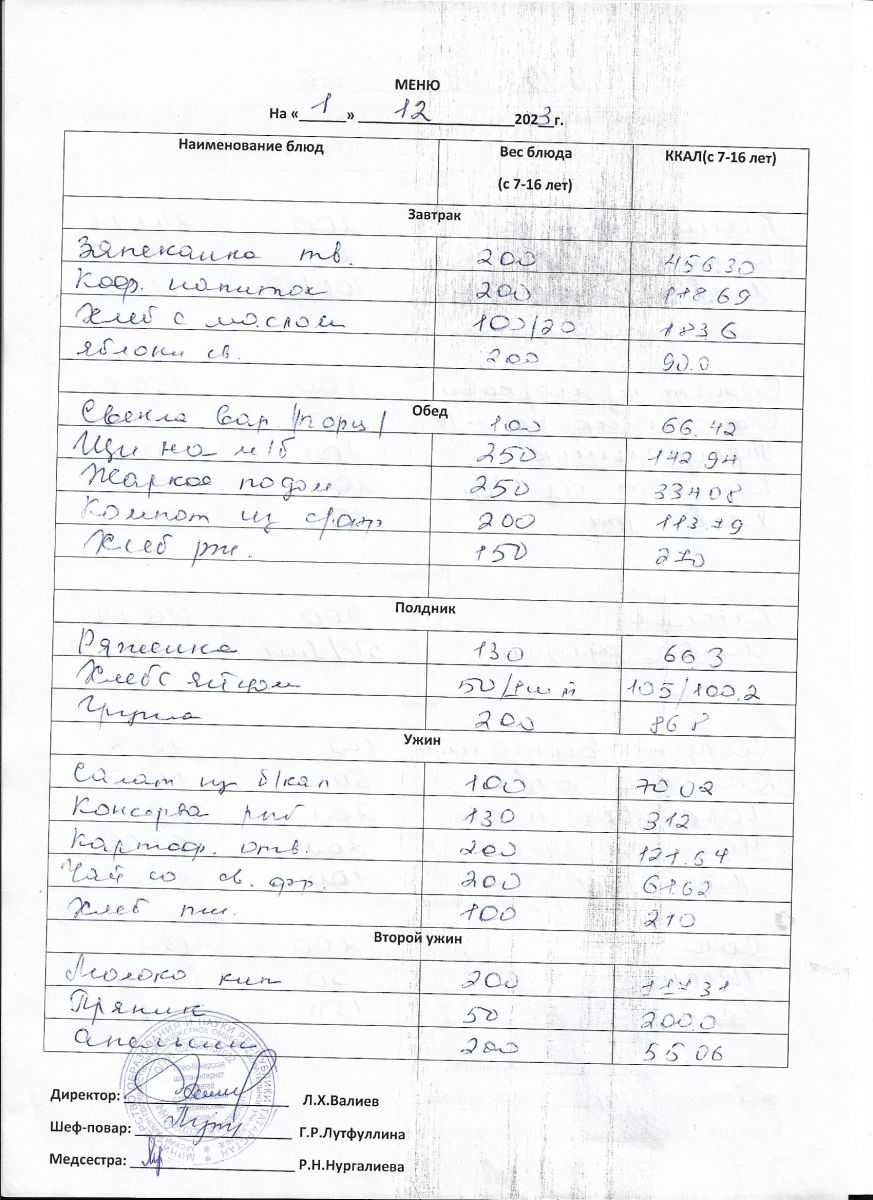 МЕНЮ
На « 1 » 12 2023 г.
Наименование блюд Вес блюда (с 7-16 лет) ККАЛ(с 7-16 лет)
Завтрак
Запеканка тв. 200 456.30
Коф. напиток 200 118.69
Хлеб с маслом 100/20 183 6
яблоки св. 200 90.0
Обед
Свекла вар /порц/ 100 66.42
Щи на м/б 250 142 94
Жаркое по дом. 250 334 08
Компот из с/фр 200 113 79
Хлеб рж. 150 270
Полдник
Ряженка 130 66 3
Хлеб с яйцом 50/1шт 105/100.2
Груша 200 86 8
Ужин
Салат из б/кап 100 70 02
Консерва рыб 130 312
Картоф. отв. 200 121.64
Чай со св. фр. 200 61 62
Хлеб пш. 100 210
Второй ужин
Молоко кип 200 111 31
Пряник 50 200.0
Апельсин 200 55 06
Директор: Л.Х.Валиев
Шеф-повар: Г.Р.Лутфуллина
Медсестра: Р.Н.Нургалиева